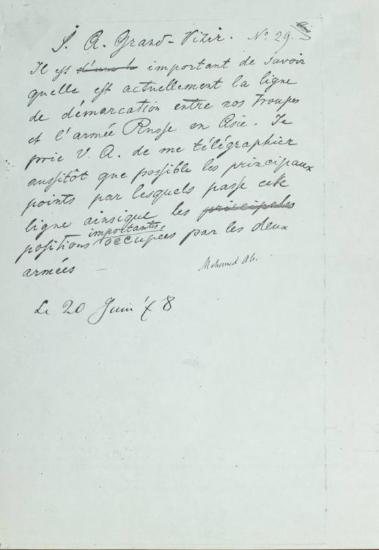 S. A. Grand-Vizir. No 29
Il est d'une important de savoir
quelle est actuellement la ligne
de démarcation entre nos troupes
et l'armée Russe en Asie. Je
prie V. A. de me télégraphier
aussitôt que possible les principaux
points par lesquels passe cette
ligne ainsique les principales
positions importantes occupées par les deux
armées —
Mehemed Ali.
Le 20 Juin 78